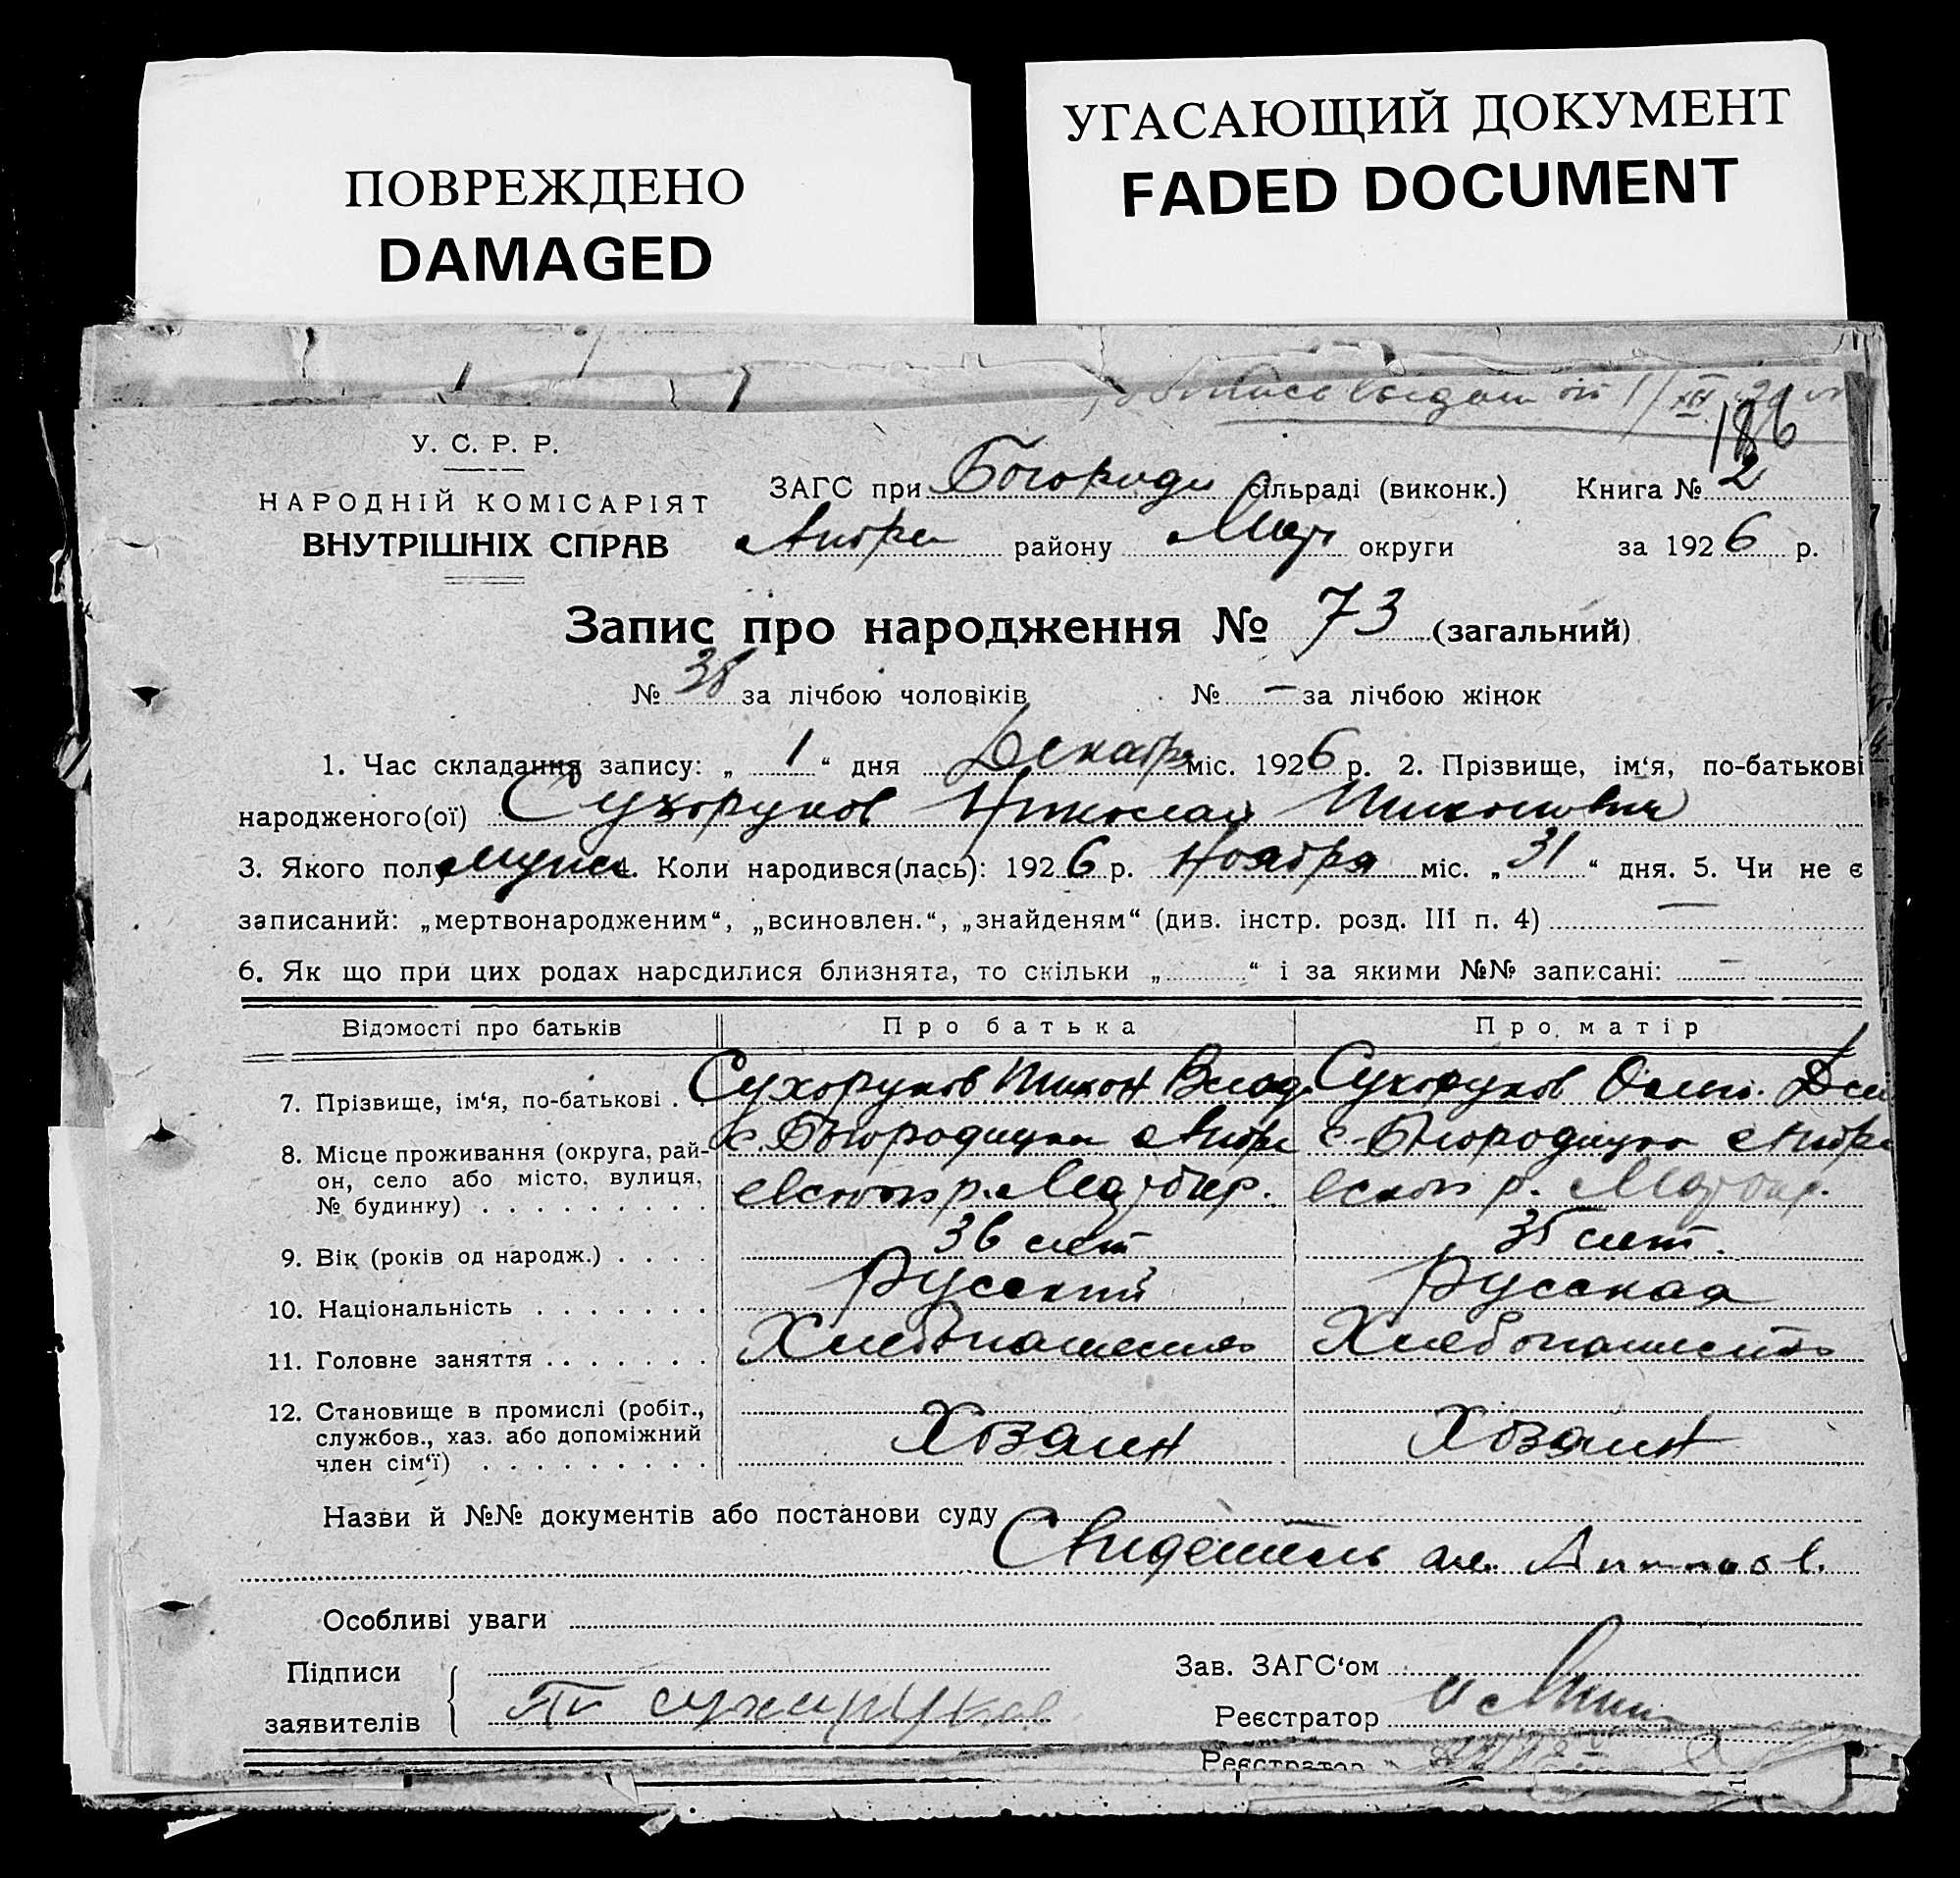 ПОВРЕЖДЕНО
DAMAGED
УГАСАЮЩИЙ ДОКУМЕНТ
FADED DOCUMENT
186
У. С. Р. Р.
НАРОДНІЙ КОМІСАРІЯТ
ВНУТРІШНІХ СПРАВ
ЗАГС при Богороди сільраді (виконк.) Книга № 2
Андре району Мар округи за 1926 р.
Запис про народження № 73 (загальний)
№ 38 за лічбою чоловіків № — за лічбою жінок
1. Час складання запису: „ 1 “ дня Декабря міс. 1926 р. 2. Прізвище, ім‘я, по-батькові
народженого(ої) Сухоруков Николай Тихонович
3. Якого полу мужс 4. Коли народився(лась): 1926 р. Ноября міс. „ 31 “ дня. 5. Чи не є
записаний: „мертвонародженим“, „всиновлен.“, „знайденям“ (див. інстр. розд. III п. 4) —
6. Як що при цих родах народилися близнята, то скільки „ “ і за якими №№ записані: —
Відомості про батьків Про батька Про матір
7. Прізвище, ім‘я, по-батькові . . Сухоруков Тихон Влад. Сухоруков
8. Місце проживання (округа, рай- с. Богородицки Андре с. Богородицки Андре
он, село або місто, вулиця,
№ будинку) . . . . . . . . . р. Мар окр. р. Мар окр.
9. Вік (років од народж.) . . . . 36 лет 35 лет.
10. Національність . . . . . . . Русский Русская
11. Головне заняття . . . . . . . Хлебопашество Хлебопашество
12. Становище в промислі (робіт.,
службов., хаз. або допоміжний Хозаин Хозаин
член сім‘ї) . . . . . . . . .
Назви й №№ документів або постанови суду
Свидетель
Особливі уваги
Підписи Зав. ЗАГС‘ом
заявителів сухоруков Реєстратор
Реєстратор